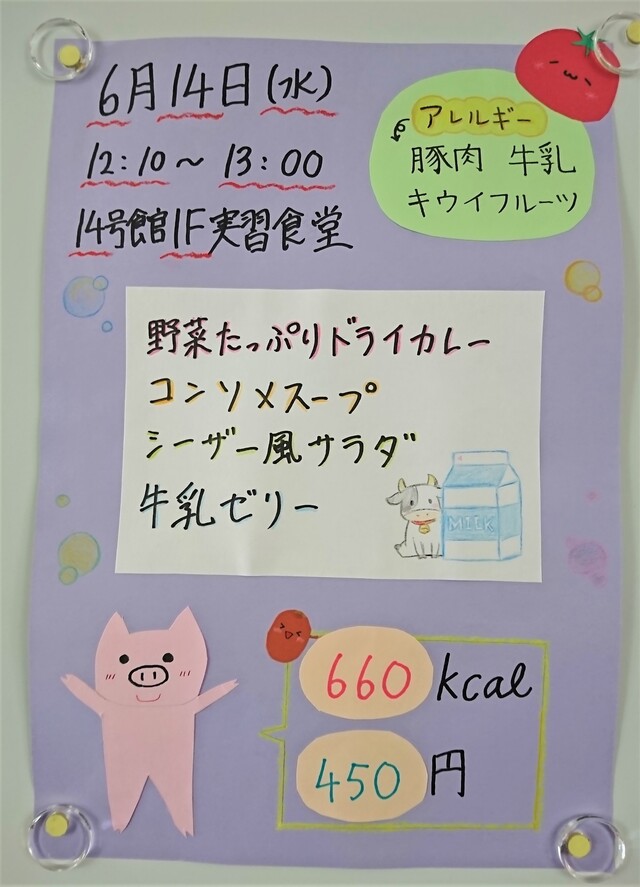 6月14日(水)
12:10～13:00
14号館1F実習食堂
アレルギー
豚肉 牛乳
キウイフルーツ
野菜たっぷりドライカレー
コンソメスープ
シーザー風サラダ
牛乳ゼリー
MILK
660kcal
450円